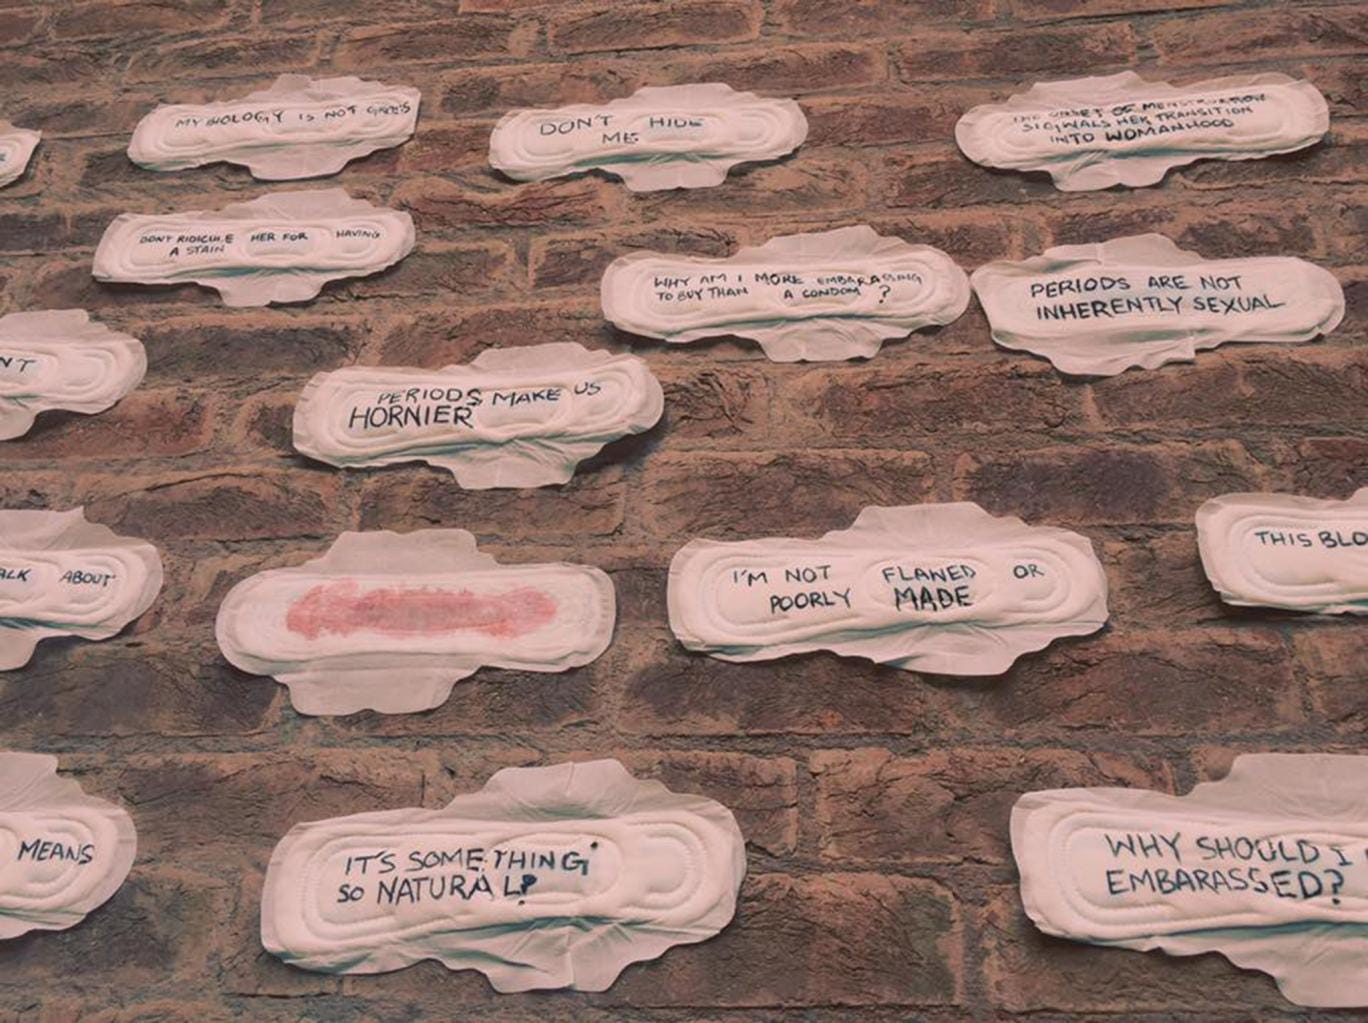 MY BIOLOGY IS NOT GROSS
DON'T HIDE
ME
THE ONSET OF MENSTRUATION
SIGNALS HER TRANSITION
INTO WOMANHOOD
DONT RIDICULE HER FOR HAVING
A STAIN
WHY AM I MORE EMBARASSING
TO BUY THAN A CONDOM ?
PERIODS ARE NOT
INHERENTLY SEXUAL
NT
PERIODS MAKE US
HORNIER
ALK ABOUT
I'M NOT FLAWED OR
POORLY MADE
THIS BLO
MEANS
IT'S SOMETHING
SO NATURAL?
WHY SHOULD I
EMBARASSED?